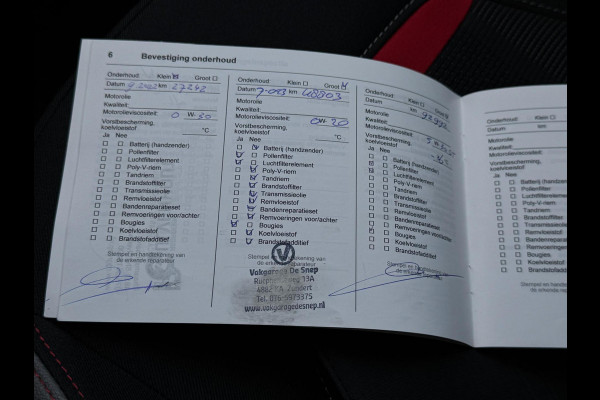 6 Bevestiging onderhoud
Onderhoud: Klein Groot
Datum km 27242
Motorolie
Kwaliteit:
Motorolieviscositeit: 0 W- 20
Vorstbescherming,
koelvloeistof °C
Ja Nee
Batterij (handzender)
Pollenfilter
Luchtfilterelement
Poly-V-riem
Tandriem
Brandstoffilter
Transmissieolie
Remvloeistof
Bandenreparatieset
Remvoeringen voor/achter
Bougies
Koelvloeistof
Brandstofadditief
Stempel en handtekening van
de erkende reparateur
Onderhoud: Klein Groot
Datum km 48803
Motorolie
Kwaliteit:
Motorolieviscositeit: 0W- 20
Vorstbescherming,
koelvloeistof °C
Ja Nee
Batterij (handzender)
Pollenfilter
Luchtfilterelement
Poly-V-riem
Tandriem
Brandstoffilter
Transmissieolie
Remvloeistof
Bandenreparatieset
Remvoeringen voor/achter
Bougies
Koelvloeistof
Brandstofadditief
Stempel en handtekening van
de erkende reparateur
Vakgarage De Snep
Zundert
www.vakgaragedesnep.nl
Onderhoud: Klein Groot
Datum km
Motorolie
Kwaliteit:
Motorolieviscositeit:
Vorstbescherming,
koelvloeistof
Ja Nee
Batterij (handzender)
Pollenfilter
Luchtfilterelement
Poly-V-riem
Tandriem
Brandstoffilter
Transmissieolie
Remvloeistof
Bandenreparatieset
Remvoeringen voor/achter
Bougies
Koelvloeistof
Brandstofadditief
Stempel en handtekening van
de erkende reparateur
Onderhoud: Klein
Datum km
Motorolie
Kwaliteit:
Motorolieviscositeit:
Vorstbescherming,
koelvloeistof
Ja Nee
Batterij (handzender)
Pollenfilter
Luchtfilterelement
Poly-V-riem
Tandriem
Brandstoffilter
Transmissieolie
Remvloeistof
Bandenreparatieset
Remvoeringen
Bougies
Koelvloeistof
Brandstofadditief
Stempel en
de erkende